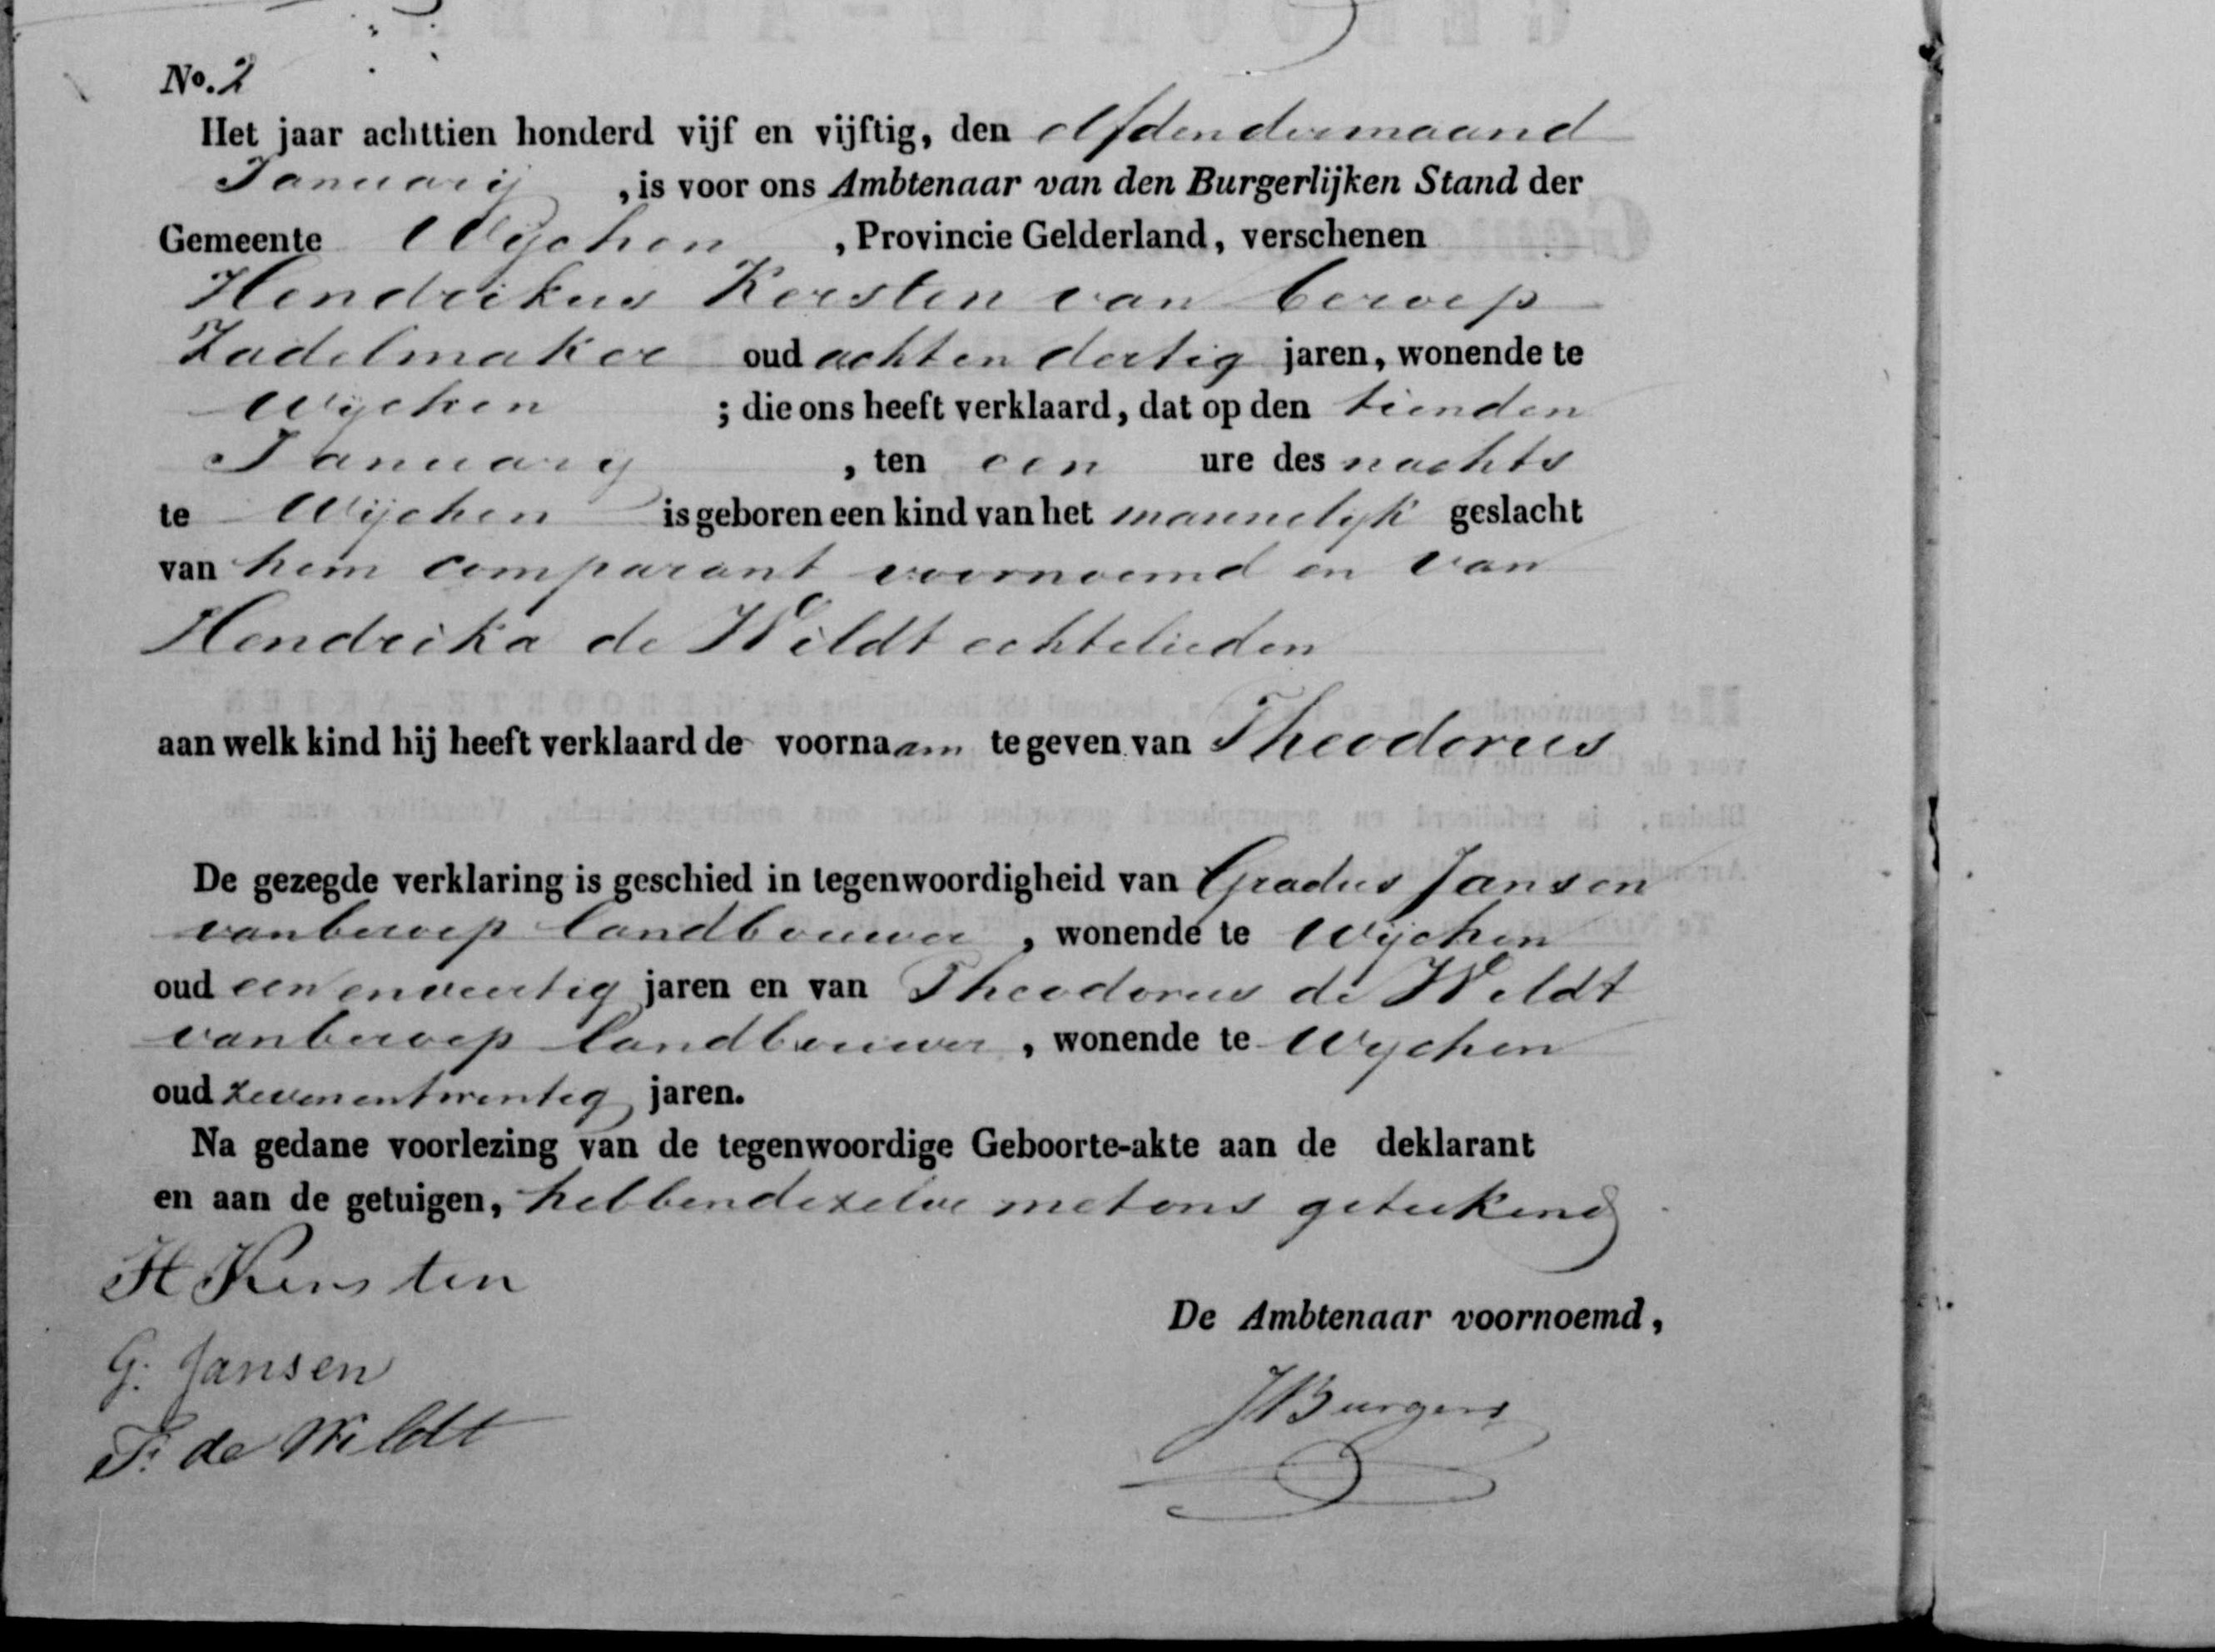 No. 2
Het jaar achttien honderd vijf en vijftig, den elfden der maand
Januarij , is voor ons Ambtenaar van den Burgerlijken Stand der
Gemeente Wijchen , Provincie Gelderland, verschenen
Hendrikus Kersten van beroep
Zadelmaker oud acht en dertig jaren, wonende te
Wijchen ; die ons heeft verklaard, dat op den tienden
January , ten een ure des nachts
te Wijchen is geboren een kind van het mannelijk geslacht
van hem comparant voornoemd en van
Hendrika de Wildt echtelieden
aan welk kind hij heeft verklaard de voornaam te geven van Theodorus
De gezegde verklaring is geschied in tegenwoordigheid van Gradus Jansen
van beroep landbouwer , wonende te Wijchen
oud een en veertig jaren en van Theodorus de Wildt
van beroep landbouwer , wonende te Wychen
oud zevenentwintig jaren.
Na gedane voorlezing van de tegenwoordige Geboorte-akte aan de deklarant
en aan de getuigen, hebben dezelve met ons geteekend
H Kersten
De Ambtenaar voornoemd,
G. Jansen
JBurgers
T. de Wildt